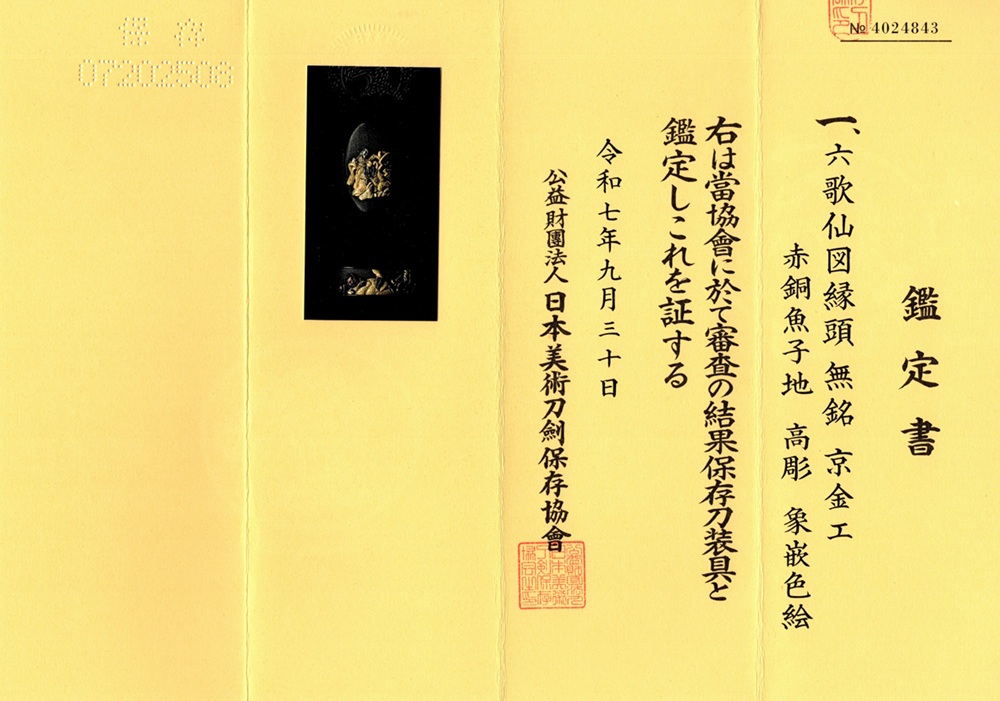 № 4024843
鑑定書
一、六歌仙図縁頭 無銘 京金工
赤銅魚子地 高彫 象嵌色絵
右は當協會に於て審査の結果保存刀装具と
鑑定しこれを証する
令和七年九月三十日
公益財團法人 日本美術刀劍保存協會
保存
07202508